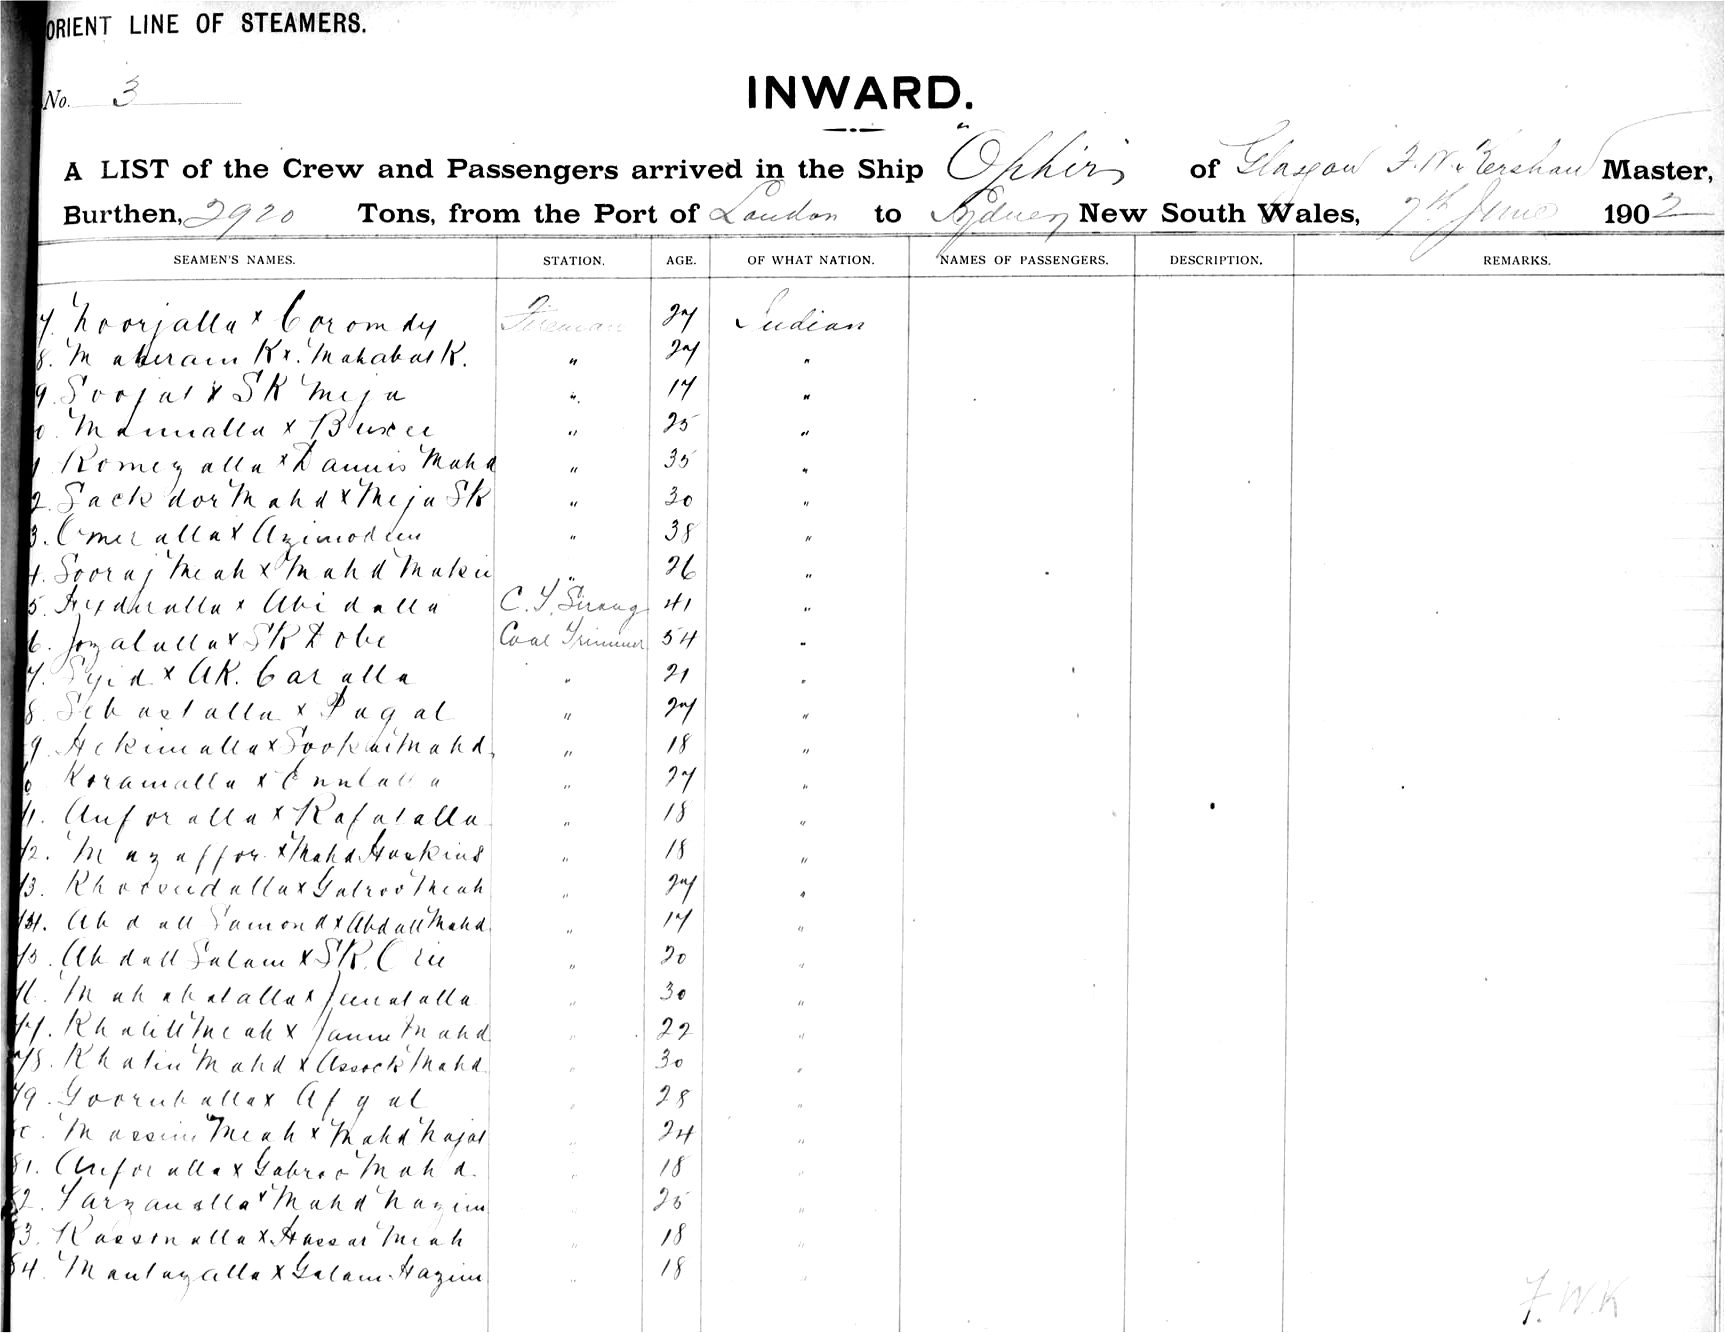 ORIENT LINE OF STEAMERS.
No. 3
INWARD.
A LIST of the Crew and Passengers arrived in the Ship "Ophir" of Glasgow F. W. Kershaw Master,
Burthen, 2920 Tons, from the Port of London to Sydney New South Wales, 7th June 1902
SEAMEN'S NAMES. STATION. AGE. OF WHAT NATION. NAMES OF PASSENGERS. DESCRIPTION. REMARKS.
7. Noorjalla x Coromdy Fireman 27 Indian
8. Maheram K x. Mahabat K. " 27 "
9. Soojat x SK Meja " 17 "
0. Manualla x Buxee " 25 "
1. Romezalla x Dannis Mahd " 35 "
2. Sackdor Mahd x Meja SK " 30 "
3. Omeralla x Azimodeen " 38 "
4. Sooraj Meah x Mahd Makie " 26 "
5. Hyderalla x Abidalla C. T. Serang 41 "
6. Jozalulla x SK Dobe Coal Trimmer 54 "
7. Syid x AK. Caralla " 21 "
8. Sebastalla x Pagal " 27 "
9. Hekimalla x Mahd " 18 "
0. Koramalla x " 27 "
71. Anforalla x Rafatalla " 18 "
72. Mazaffor x Mahd Haskins " 18 "
73. x Gabroo Meah " 27 "
74. Abdall Samond x Abdall Mahd " 17 "
75. Abdall Salam x SK. " 20 "
76. Mahabatalla x Junatalla " 30 "
77. Khalill Meah x Mahd " 22 "
78. Khalin Mahd x Assock Mahd " 30 "
79. x Afzal " 28 "
80. Massim Meah x Mahd Najat " 24 "
81. Anforalla x Gabroo Mahd. " 18 "
82. Tarzanalla x Mahd Nazim " 25 "
83. Kassonalla x Hassar Meah " 18 "
84. Mantazalla x Golam Hazim " 18 "
F. W. K